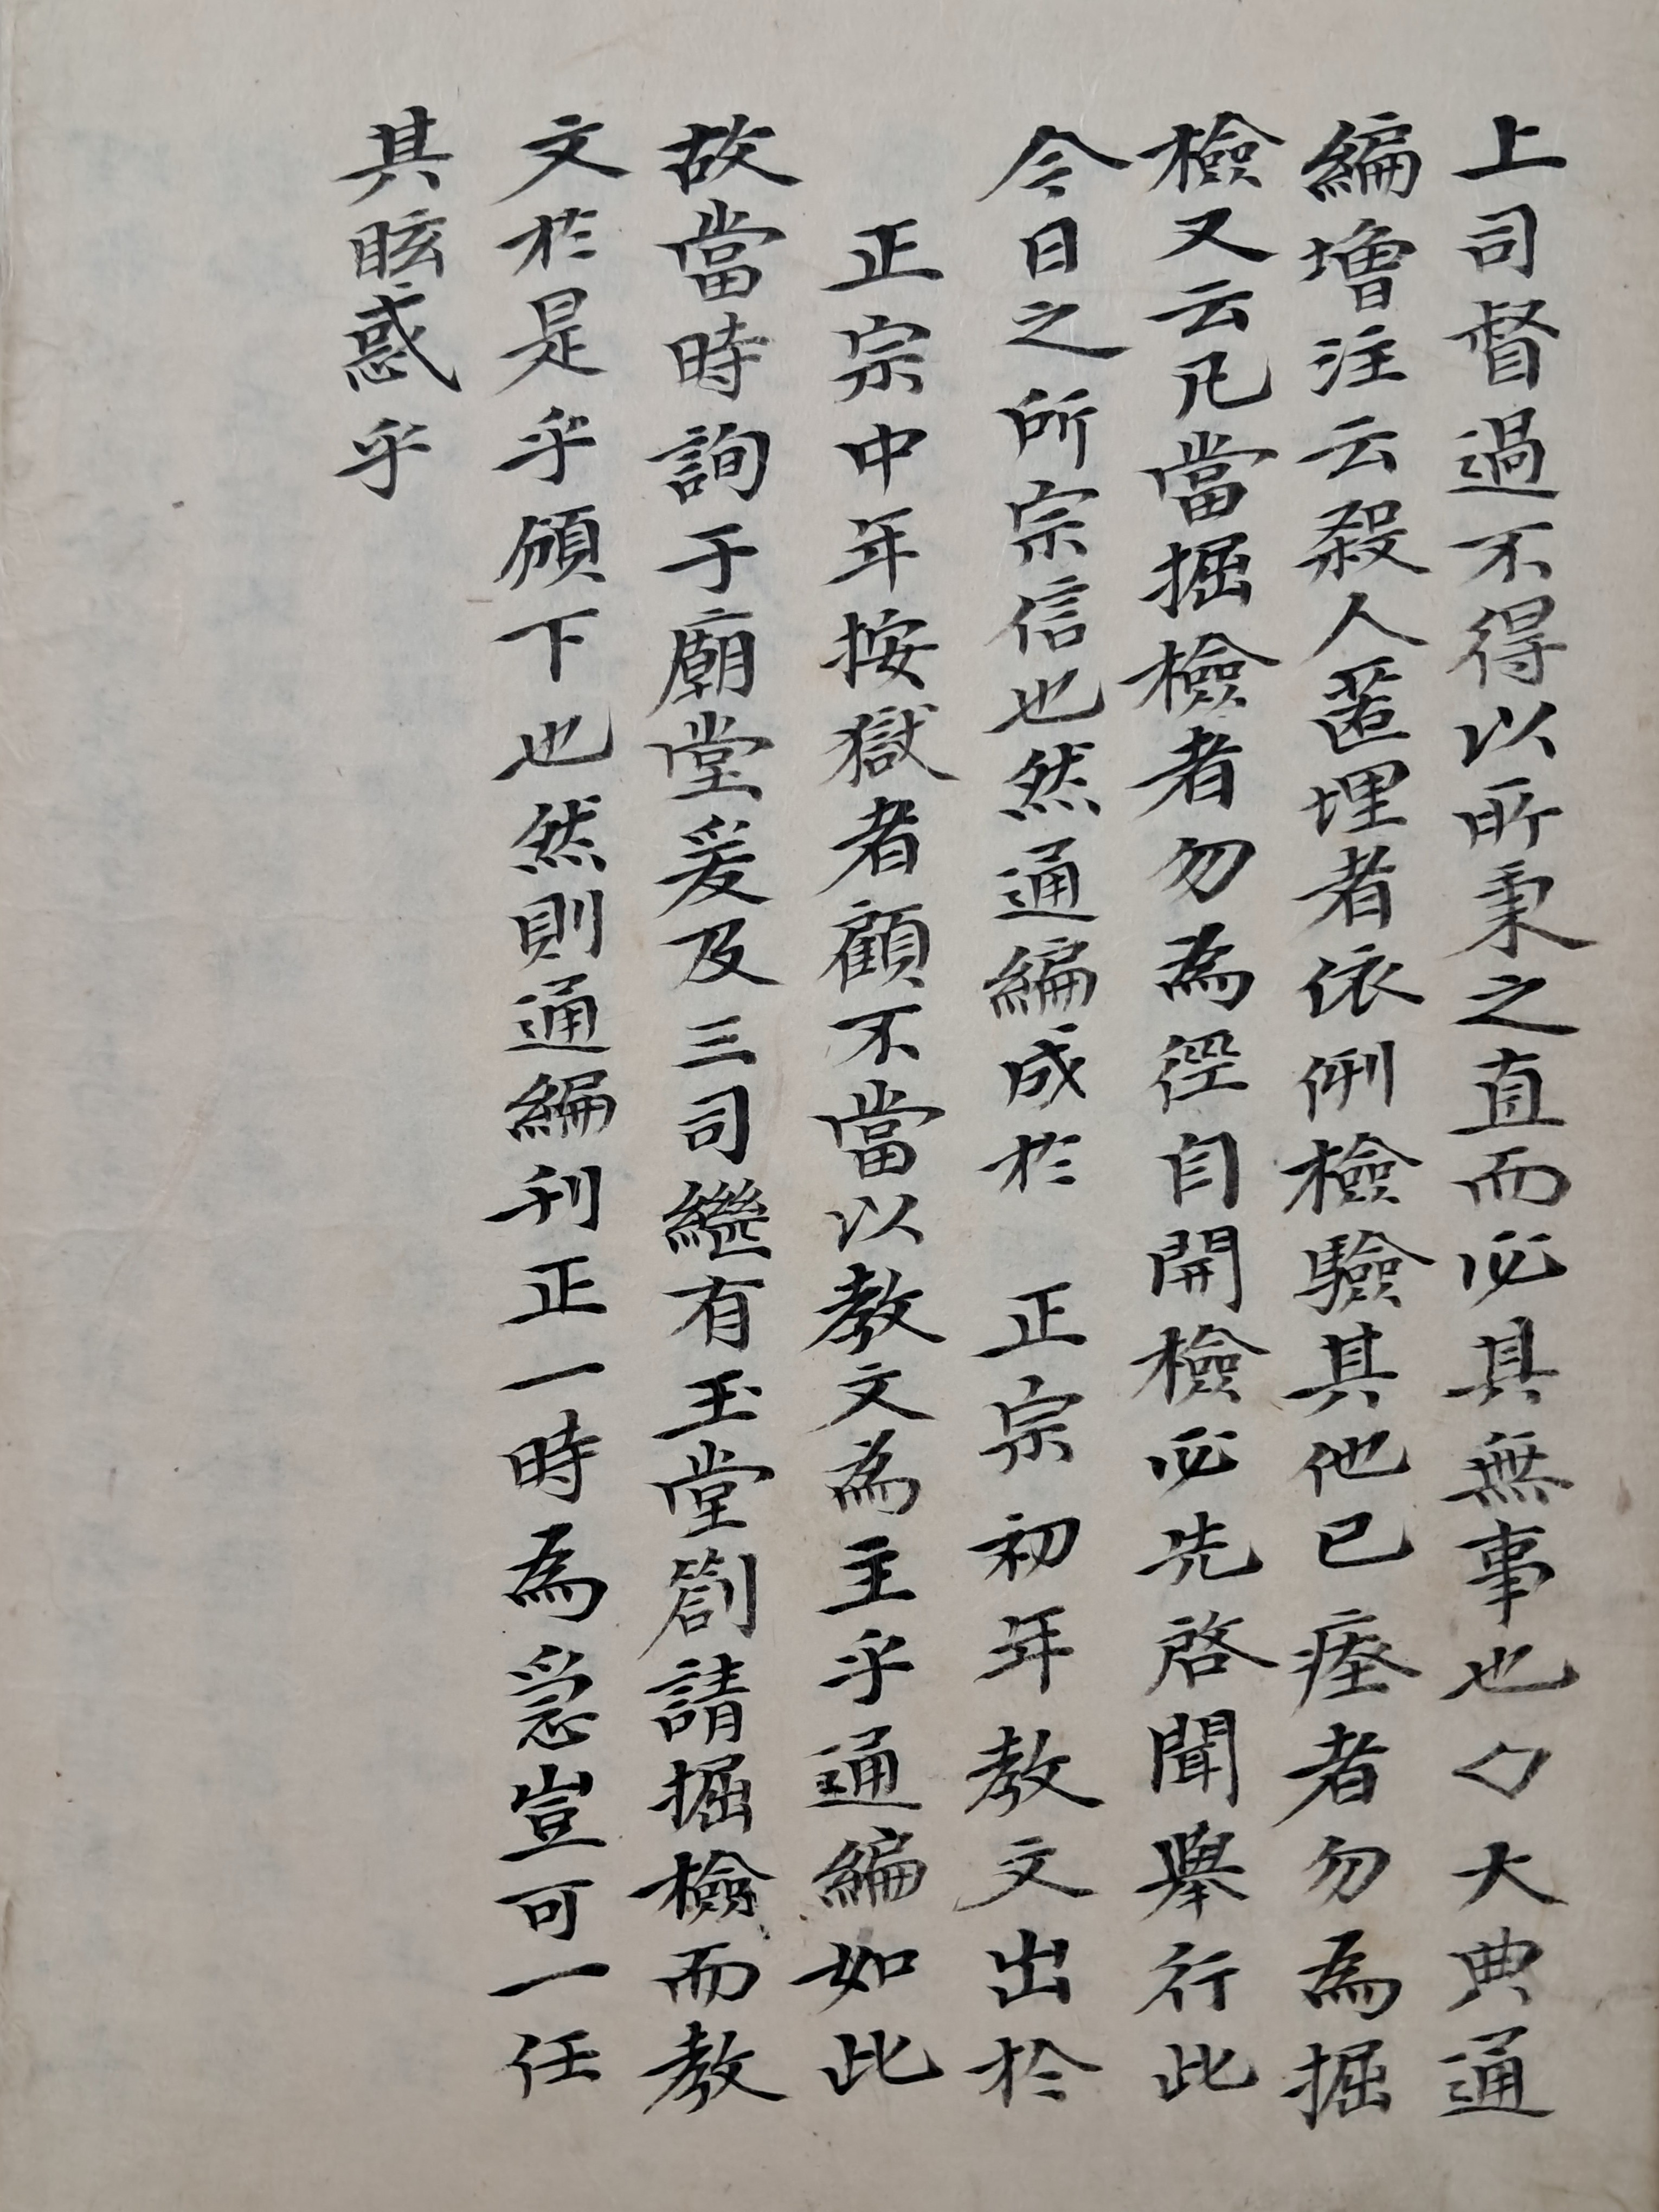 上司督過不得以所秉之直而必其無事也◇大典通
編增注云殺人匿埋者依例檢驗其他已瘞者勿為掘
檢又云凡當掘檢者勿為徑自開檢必先啓聞舉行此
今日之所宗信也然通編成於 正宗初年教文出於
正宗中年按獄者顧不當以教文為主乎通編如此
故當時詢于廟堂爰及三司繼有玉堂劄請掘檢而教
文於是乎頒下也然則通編刊正一時為急豈可一任
其眩惑乎